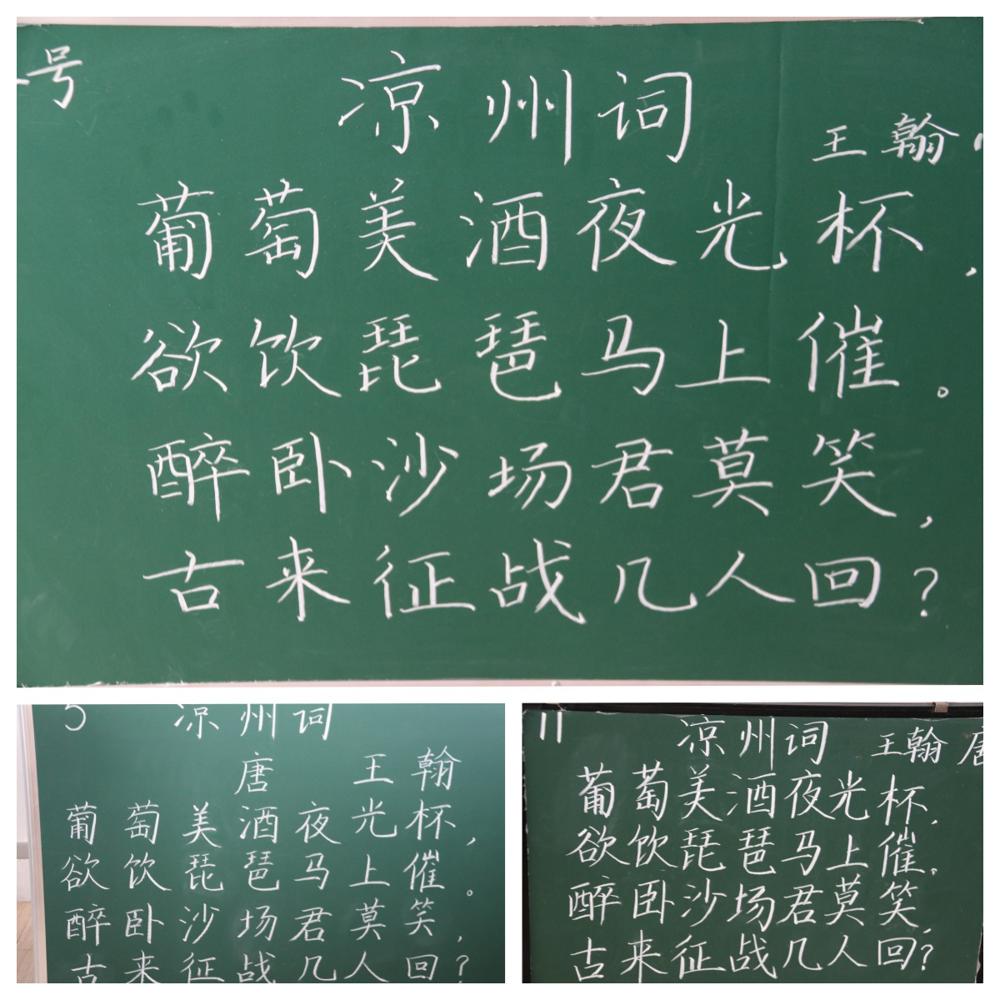 号
凉州词
王翰
葡萄美酒夜光杯,
欲饮琵琶马上催。
醉卧沙场君莫笑,
古来征战几人回?
5
凉州词
唐 王翰
葡萄美酒夜光杯,
欲饮琵琶马上催。
醉卧沙场君莫笑,
古来征战几人回?
11
凉州词
王翰 唐
葡萄美酒夜光杯.
欲饮琵琶马上催.
醉卧沙场君莫笑.
古来征战几人回?